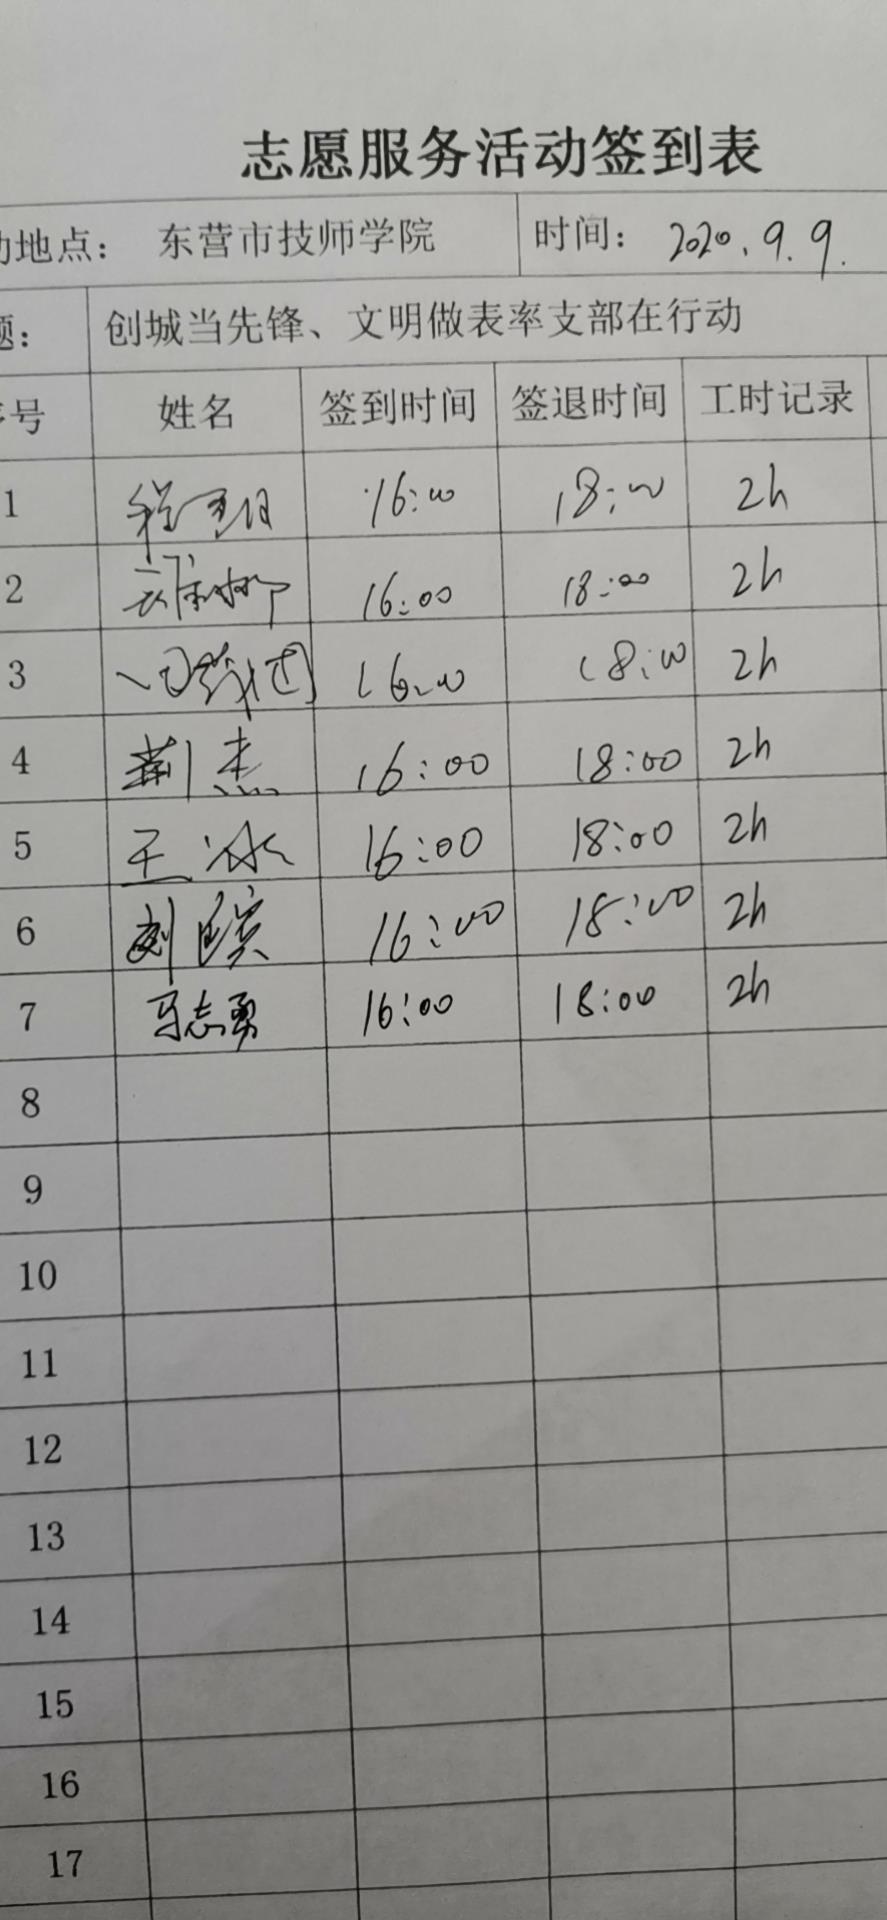 志愿服务活动签到表
动地点： 东营市技师学院 时间： 2020.9.9.
题： 创城当先锋、文明做表率支部在行动
序号 姓名 签到时间 签退时间 工时记录
1 16:00 18:00 2h
2 16:00 18:00 2h
3 16:00 18:00 2h
4 荆杰 16:00 18:00 2h
5 王冰 16:00 18:00 2h
6 刘 16:00 18:00 2h
7 马志勇 16:00 18:00 2h
8
9
10
11
12
13
14
15
16
17